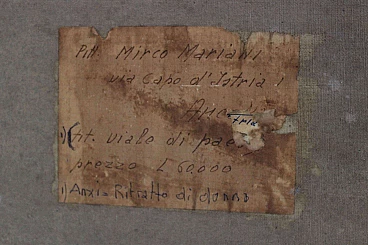 Pitt. Mirco Mariani
via Capo d'Istria 1
tit. viale di pae
prezzo L 60.000
1) Anxi = Ritratto di donna